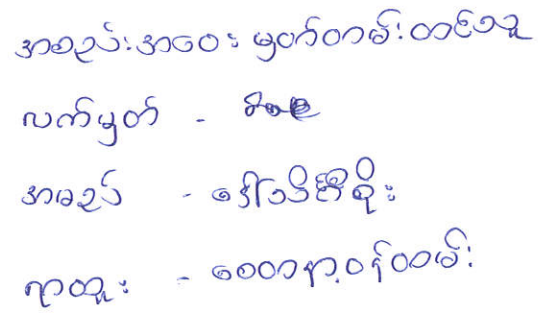 အစည်းအဝေး မှတ်တမ်းတင်သူ
လက်မှတ် -
အမည် - ဒေါ်သိင်္ဂီစိုး
ရာထူး - စေတနာ့ဝန်ထမ်း